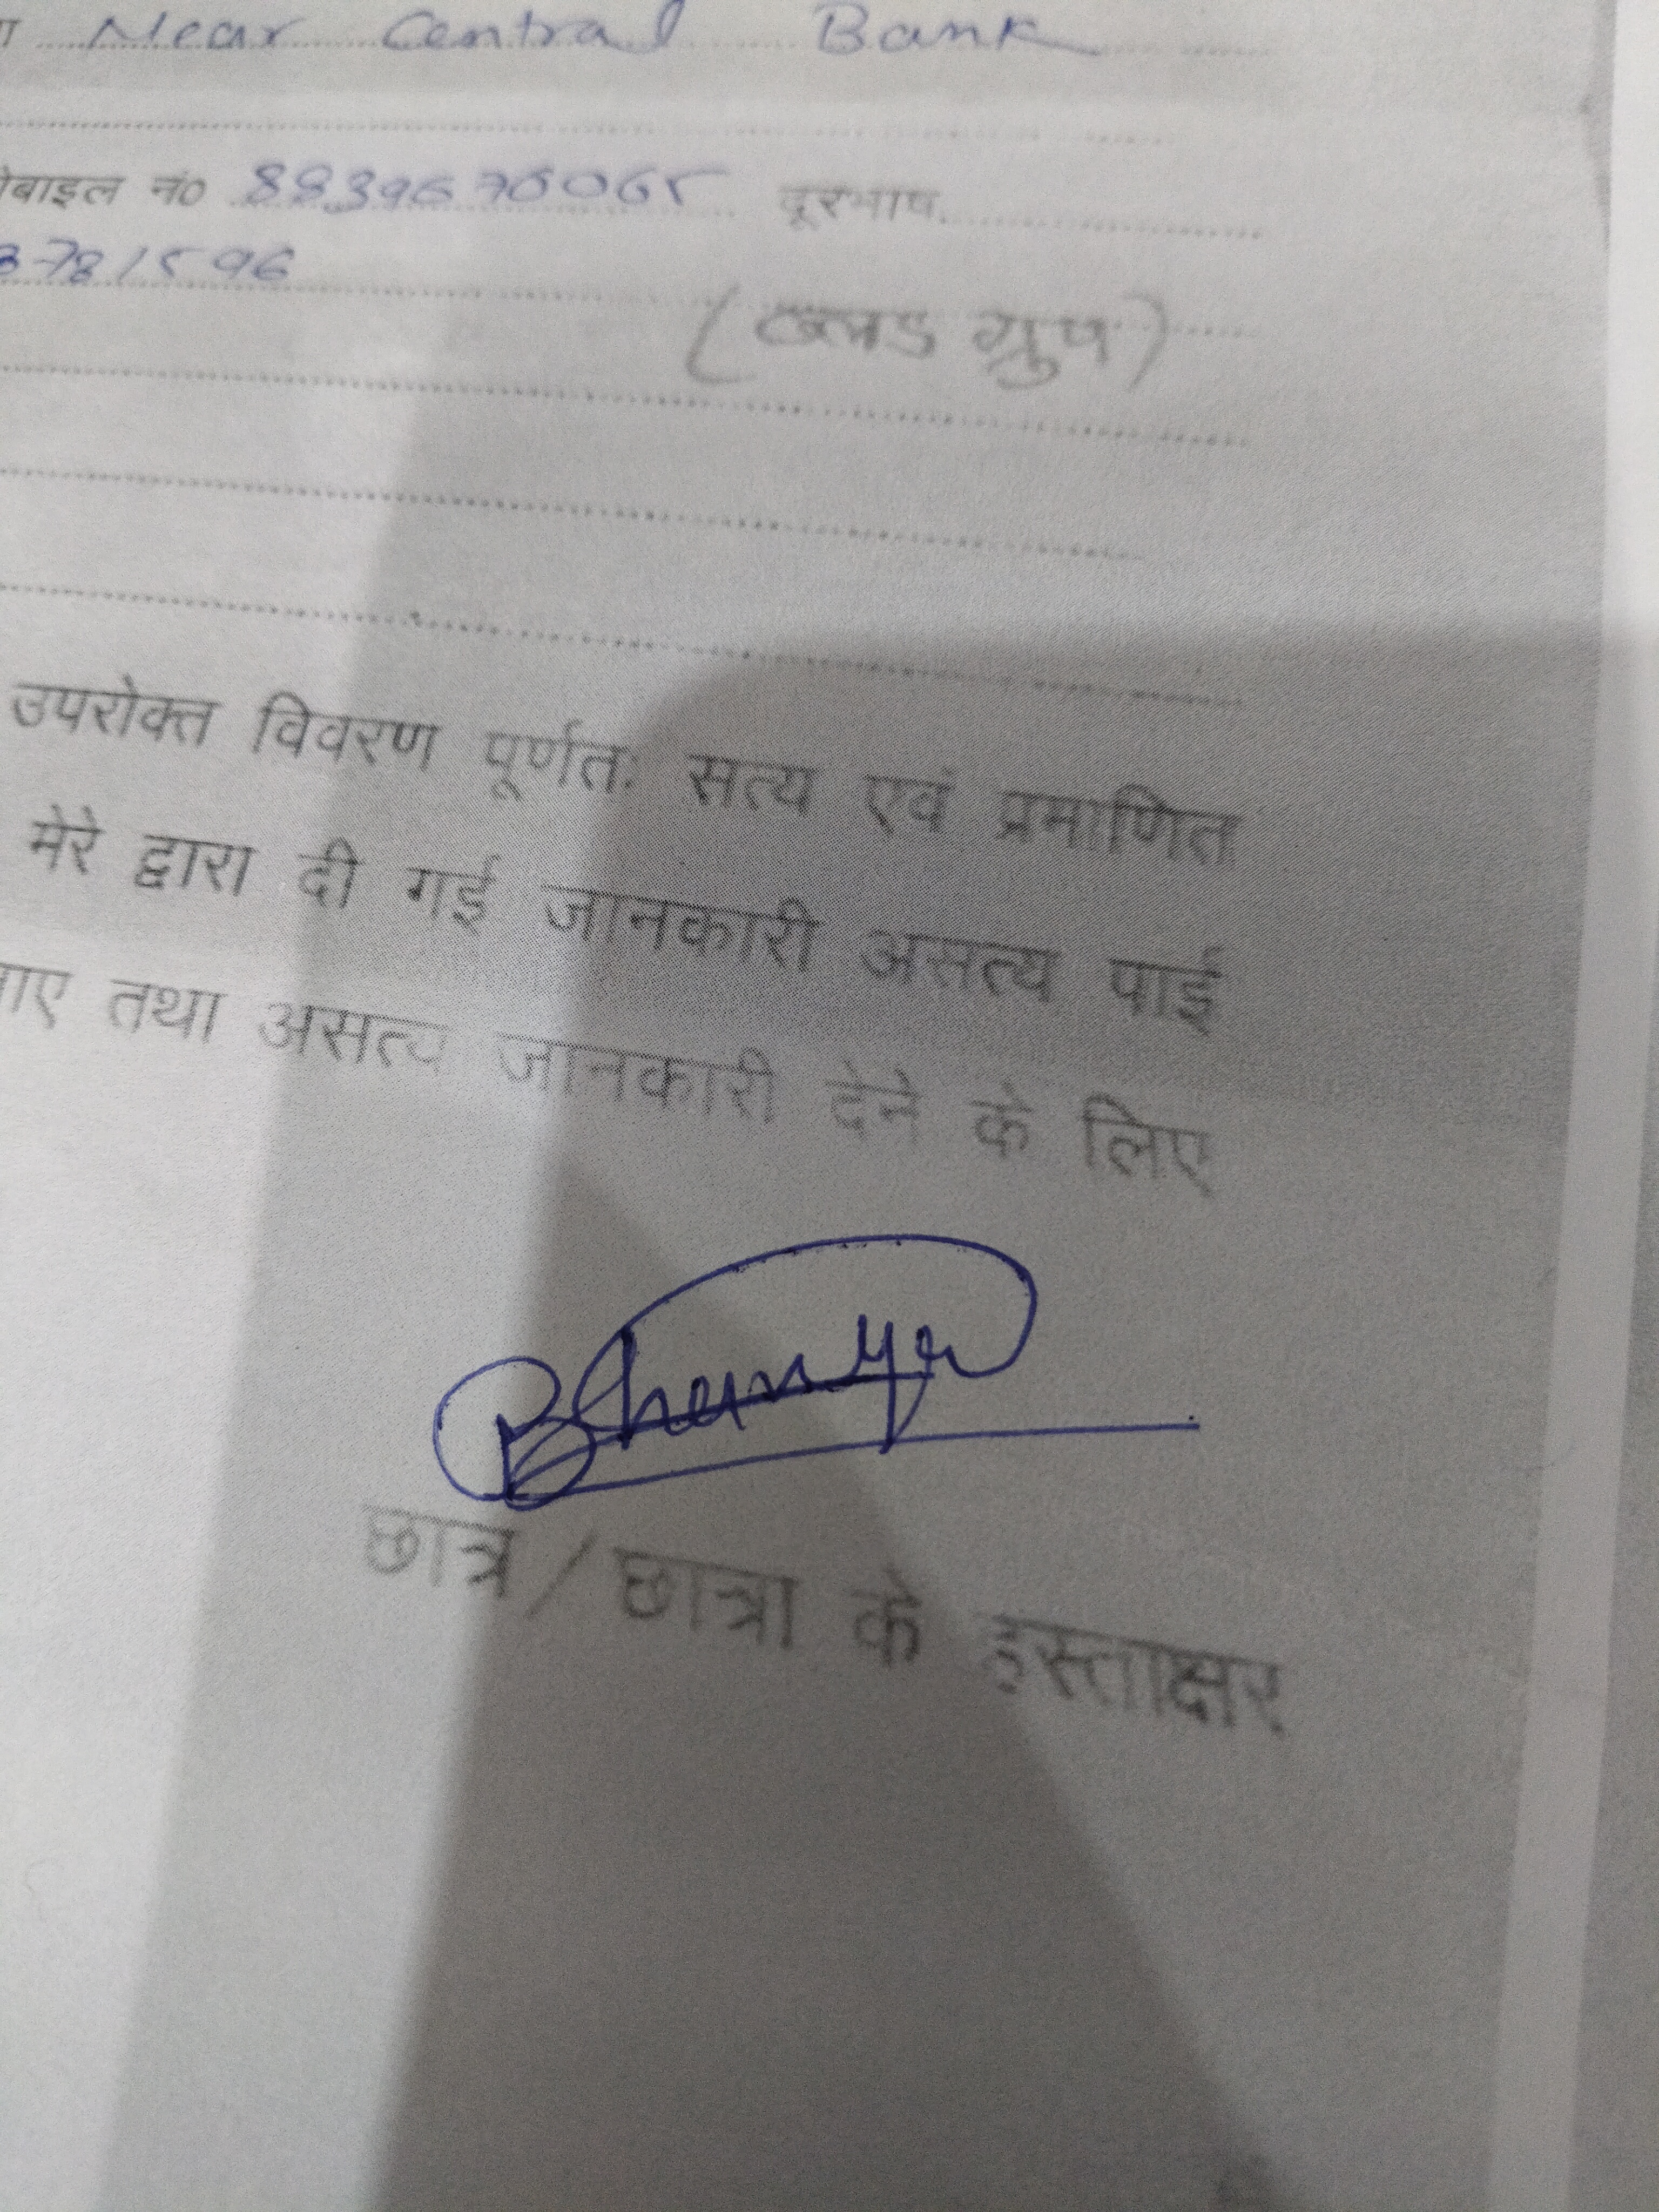 Near Central Bank
मोबाइल नं0 8839670065 दूरभाष
3781596
(ब्लड ग्रुप)
उपरोक्त विवरण पूर्णतः सत्य एवं प्रमाणित
मेरे द्वारा दी गई जानकारी असत्य पाई
जाए तथा असत्य जानकारी देने के लिए
छात्र / छात्रा के हस्ताक्षर